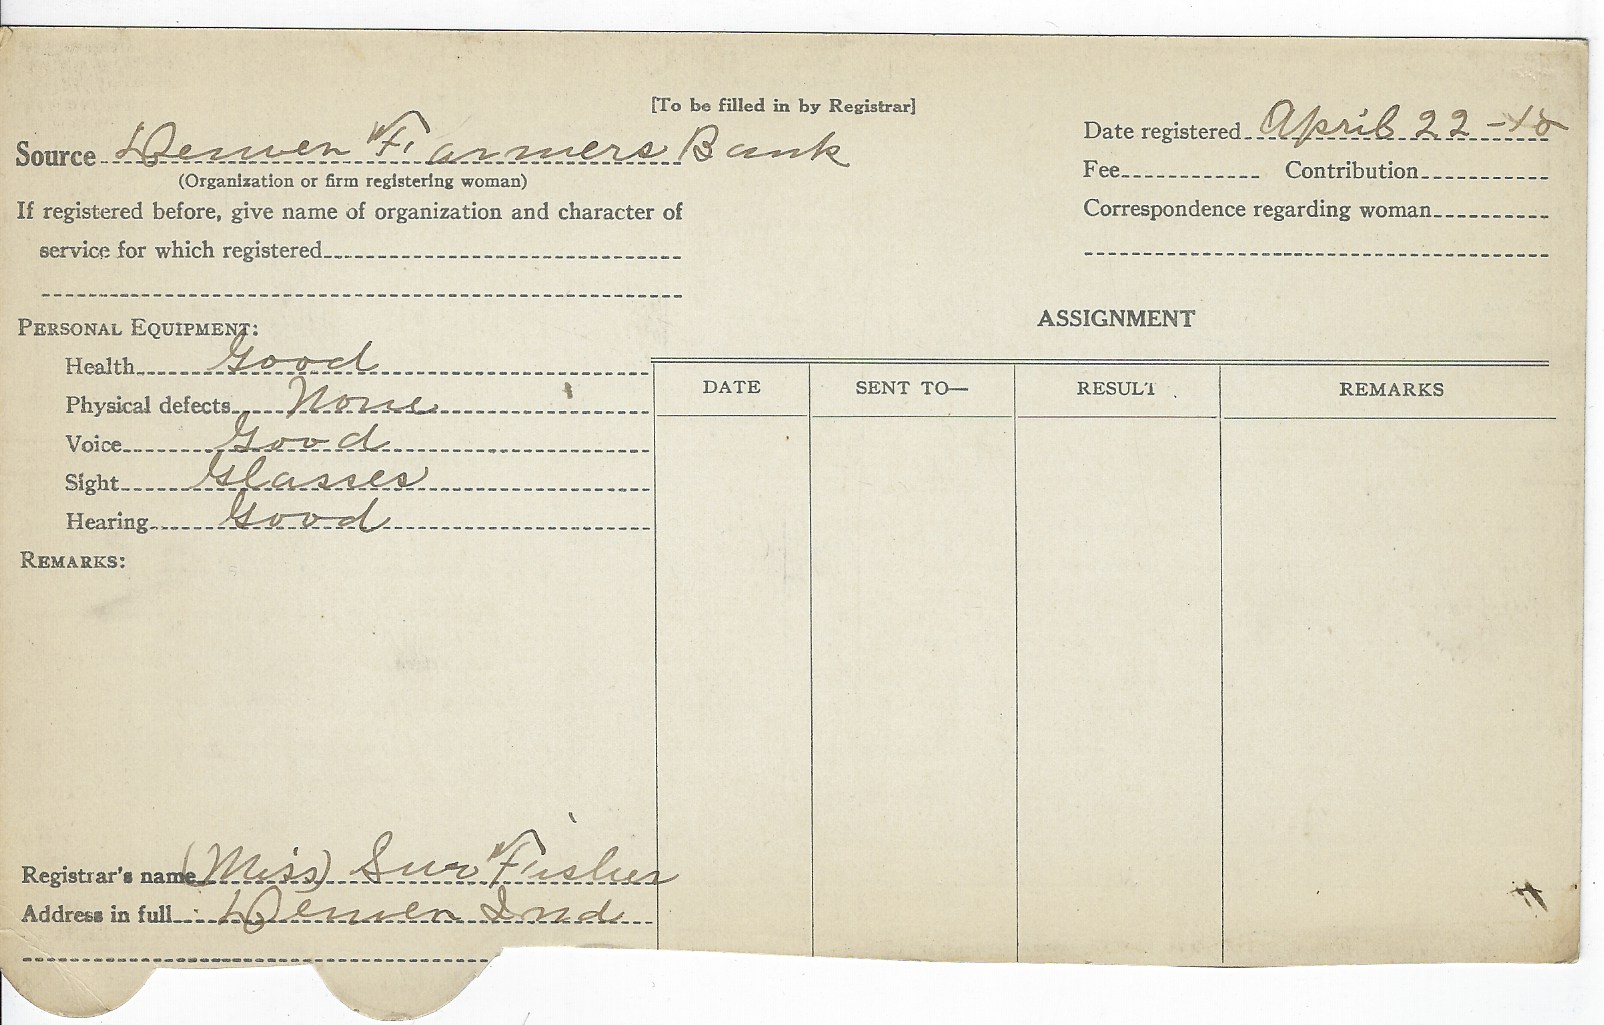 [To be filled in by Registrar]
Source Denver Farmers Bank
(Organization or firm registering woman)
If registered before, give name of organization and character of
service for which registered
Date registered April 22 -18
Fee Contribution
Correspondence regarding woman
PERSONAL EQUIPMENT:
Health Good
Physical defects None
Voice Good
Sight Glasses
Hearing Good
REMARKS:
ASSIGNMENT
DATE SENT TO— RESULT REMARKS
Registrar's name (Miss) Fisher
Address in full Denver Ind